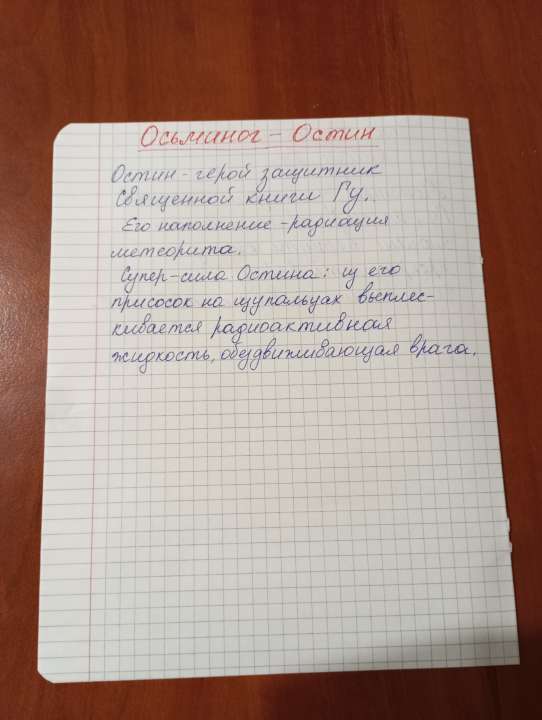 Осьминог - Остин
Остин - герой защитник
Священной книги Гу.
Его наполнение - радиация
метеорита.
Супер-сила Остина: из его
присосок на щупальцах выплес-
кивается радиоактивная
жидкость, обездвиживающая врага.